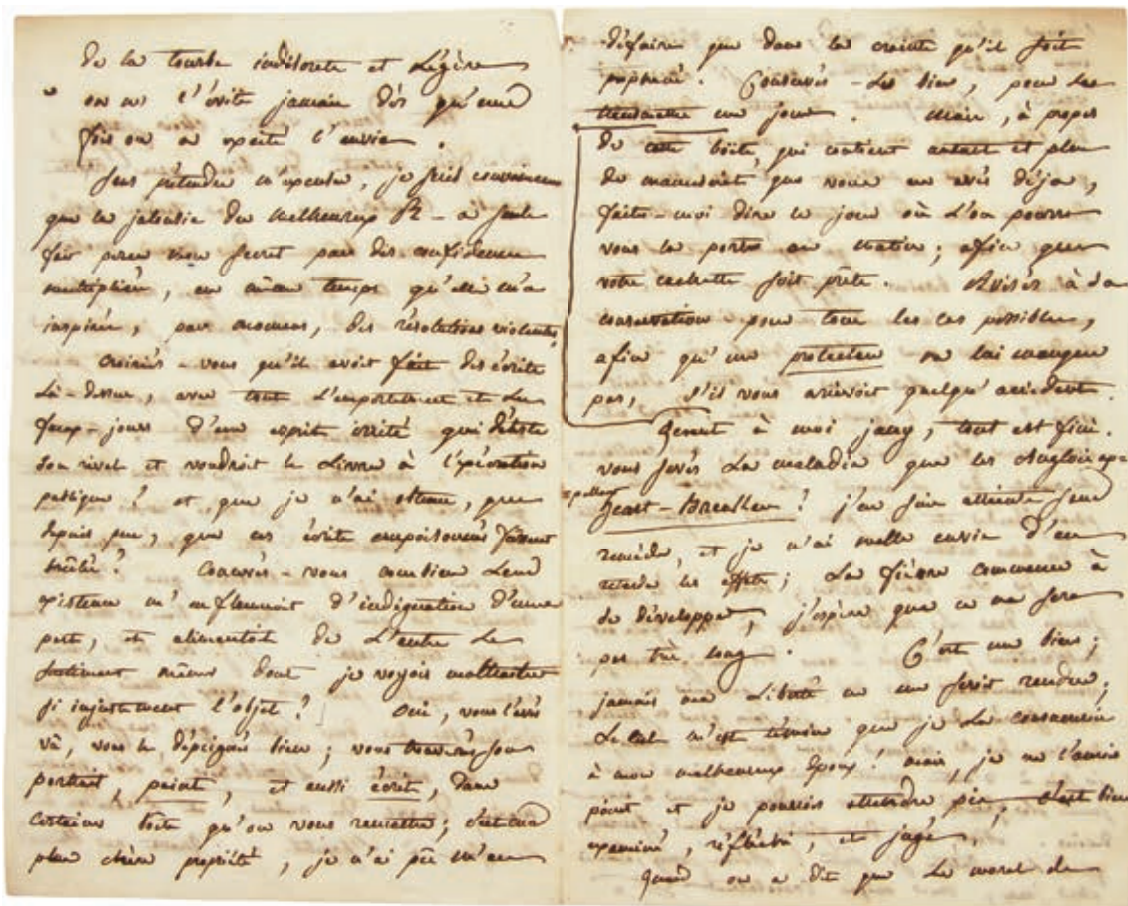 de la tourbe indiscrete et légère
on ne l'évite jamais dès qu'une
fois on a excité l'envie.
Sans prétendre m'excuser, je suis convaincue
que la jalousie du malheureux R – a seule
fait percer mon secret par des confidences
multipliées, en même temps qu'elle m'a
inspirée, par momens, des résolutions violentes,
croiriés-vous qu'il avoit fait des écrits
là-dessus, avec tout l'emportement et les
faux-jours d'un esprit irrité qui déteste
son rival et voudroit le livrer à l'exécration
publique ? et que je n'ai obtenu, que
depuis peu, que ces écrits empoisonnés fussent
brûlés ? Concevés-vous combien leur
existence m'enflammoit d'indignation d'une
part, et alimentoit de l'autre le
sentiment même dont je voyois maltraiter
si injustement l'objet ? Oui, vous l'avés
vû, vous le dépeignés bien ; vous trouverés son
portrait, peint, et aussi écrit, dans
certaine boîte qu'on vous remettra ; c'est ma
plus chère propriété, je n'ai pû m'en
défaire que dans la crainte qu'il soit
profané. Conservés-les bien, pour les
transmettre un jour. Mais, à propos
de cette boîte, qui contient autant et plus
de manuscrit que vous en avés déja,
faites-moi dire le jour où l'on pourra
vous la porter au matin ; afin que
votre cachette soit prête. Avisés à sa
conservation pour tous les cas possibles,
afin qu'un protecteur ne lui manque
pas, s'il vous arrivoit quelqu'accident.
Quant à moi Jany, tout est fini.
vous savés la maladie que les Anglois ap-
pellent heart-breaken ? j'en suis atteinte sans
remède, et je n'ai nulle envie d'en
retarder les effets ; la fièvre commence à
se développer, j'espère que ce ne sera
pas très long. C'est un bien ;
jamais ma liberté ne me seroit rendue ;
le ciel m'est témoin que je la consacrerois
à mon malheureux époux ! mais, je ne l'aurois
point et je pourrois attendre pis, c'est bien
examiné, réfléchi, et jugé.
Quand on a dit que le moral de